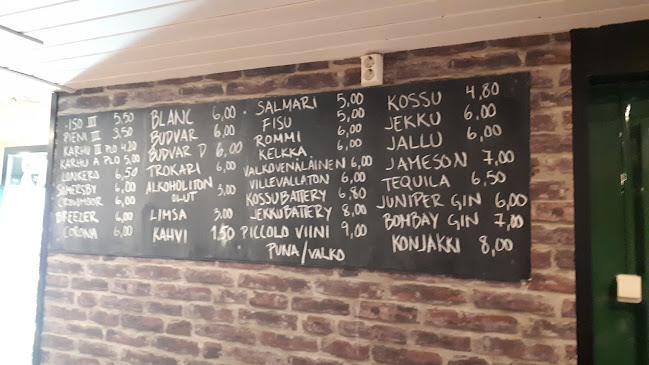 ISO III 5.50
PIENI III 3.50
KARHU III PLO 4.20
KARHU A PLO 5.00
LONKERO 6.50
SOMERSBY 6.00
CROWMOOR 6.00
BREEZER 6.00
CORONA 6.00
BLANC 6,00
BUDVAR 6,00
BUDVAR D 6,00
TROKARI 6,00
ALKOHOLITON OLUT 3,00
LIMSA 3,00
KAHVI 1,50
SALMARI 5,00
FISU 5,00
ROMMI 6,00
KELKKA 6,00
VALKOVENÄLÄINEN 6,00
VILLEVALLATON 6,00
KOSSUBATTERY 6,80
JEKKUBATTERY 8,00
PICCOLO VIINI 9,00
PUNA/VALKO
KOSSU 4,80
JEKKU 6,00
JALLU 6,00
JAMESON 7,00
TEQUILA 6,50
JUNIPER GIN 6,00
BOMBAY GIN 7,00
KONJAKKI 8,00